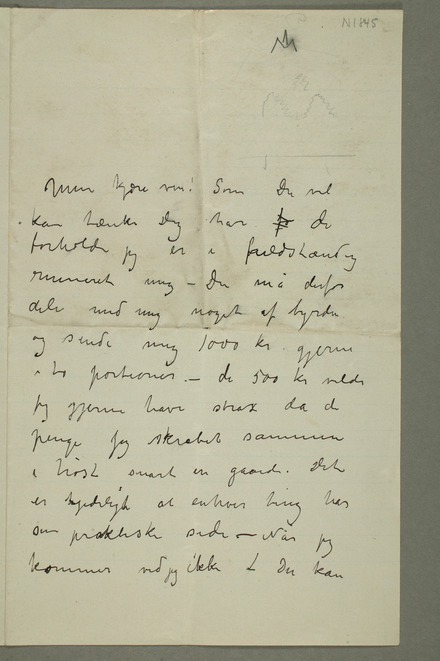 N1845
Min kjære ven! Som Du vel
kan tænke Dig har de
forholde jeg er i fuldstændig
ruineret mig – Du må derfor
dele med mig noget af byrden
og sende mig 1000 kr. gjerne
i to portioner. – de 500 kr vilde
jeg gjerne have strax da de
penge jeg skrabet sammen
i höst snart er gaaede. Det
er kjedeligt at enhver ting har
sin praktiske side – Når jeg
kommer ved jeg ikke Du kan